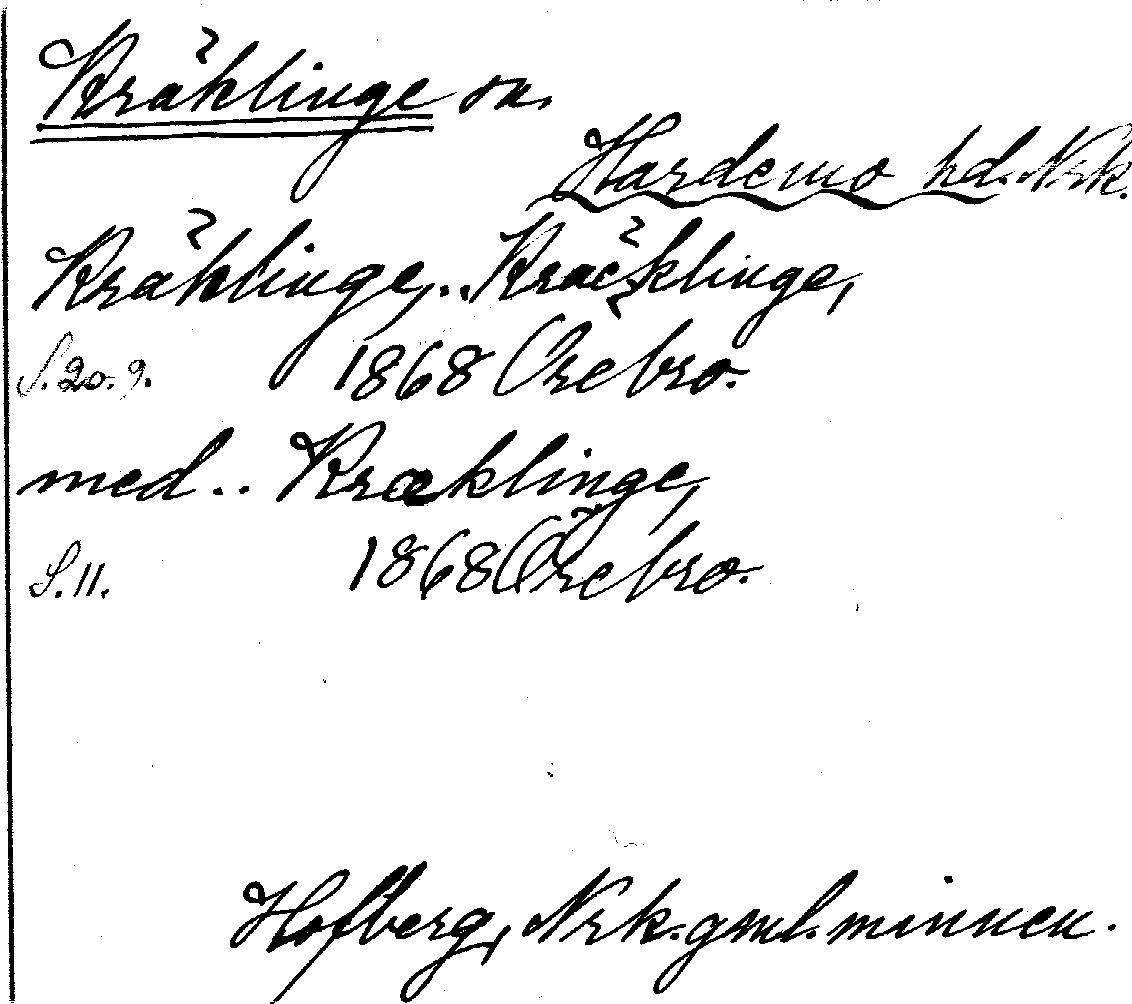 Kräklinge sn.
Hardemo hd. Nrk.
Kräklinge, .. Kräcklinge,
S. 20. 9. 1868 Örebro.
med .. Kræklinge,
S. 11. 1868 Örebro.
Hofberg, Nrk. gml. minnen.